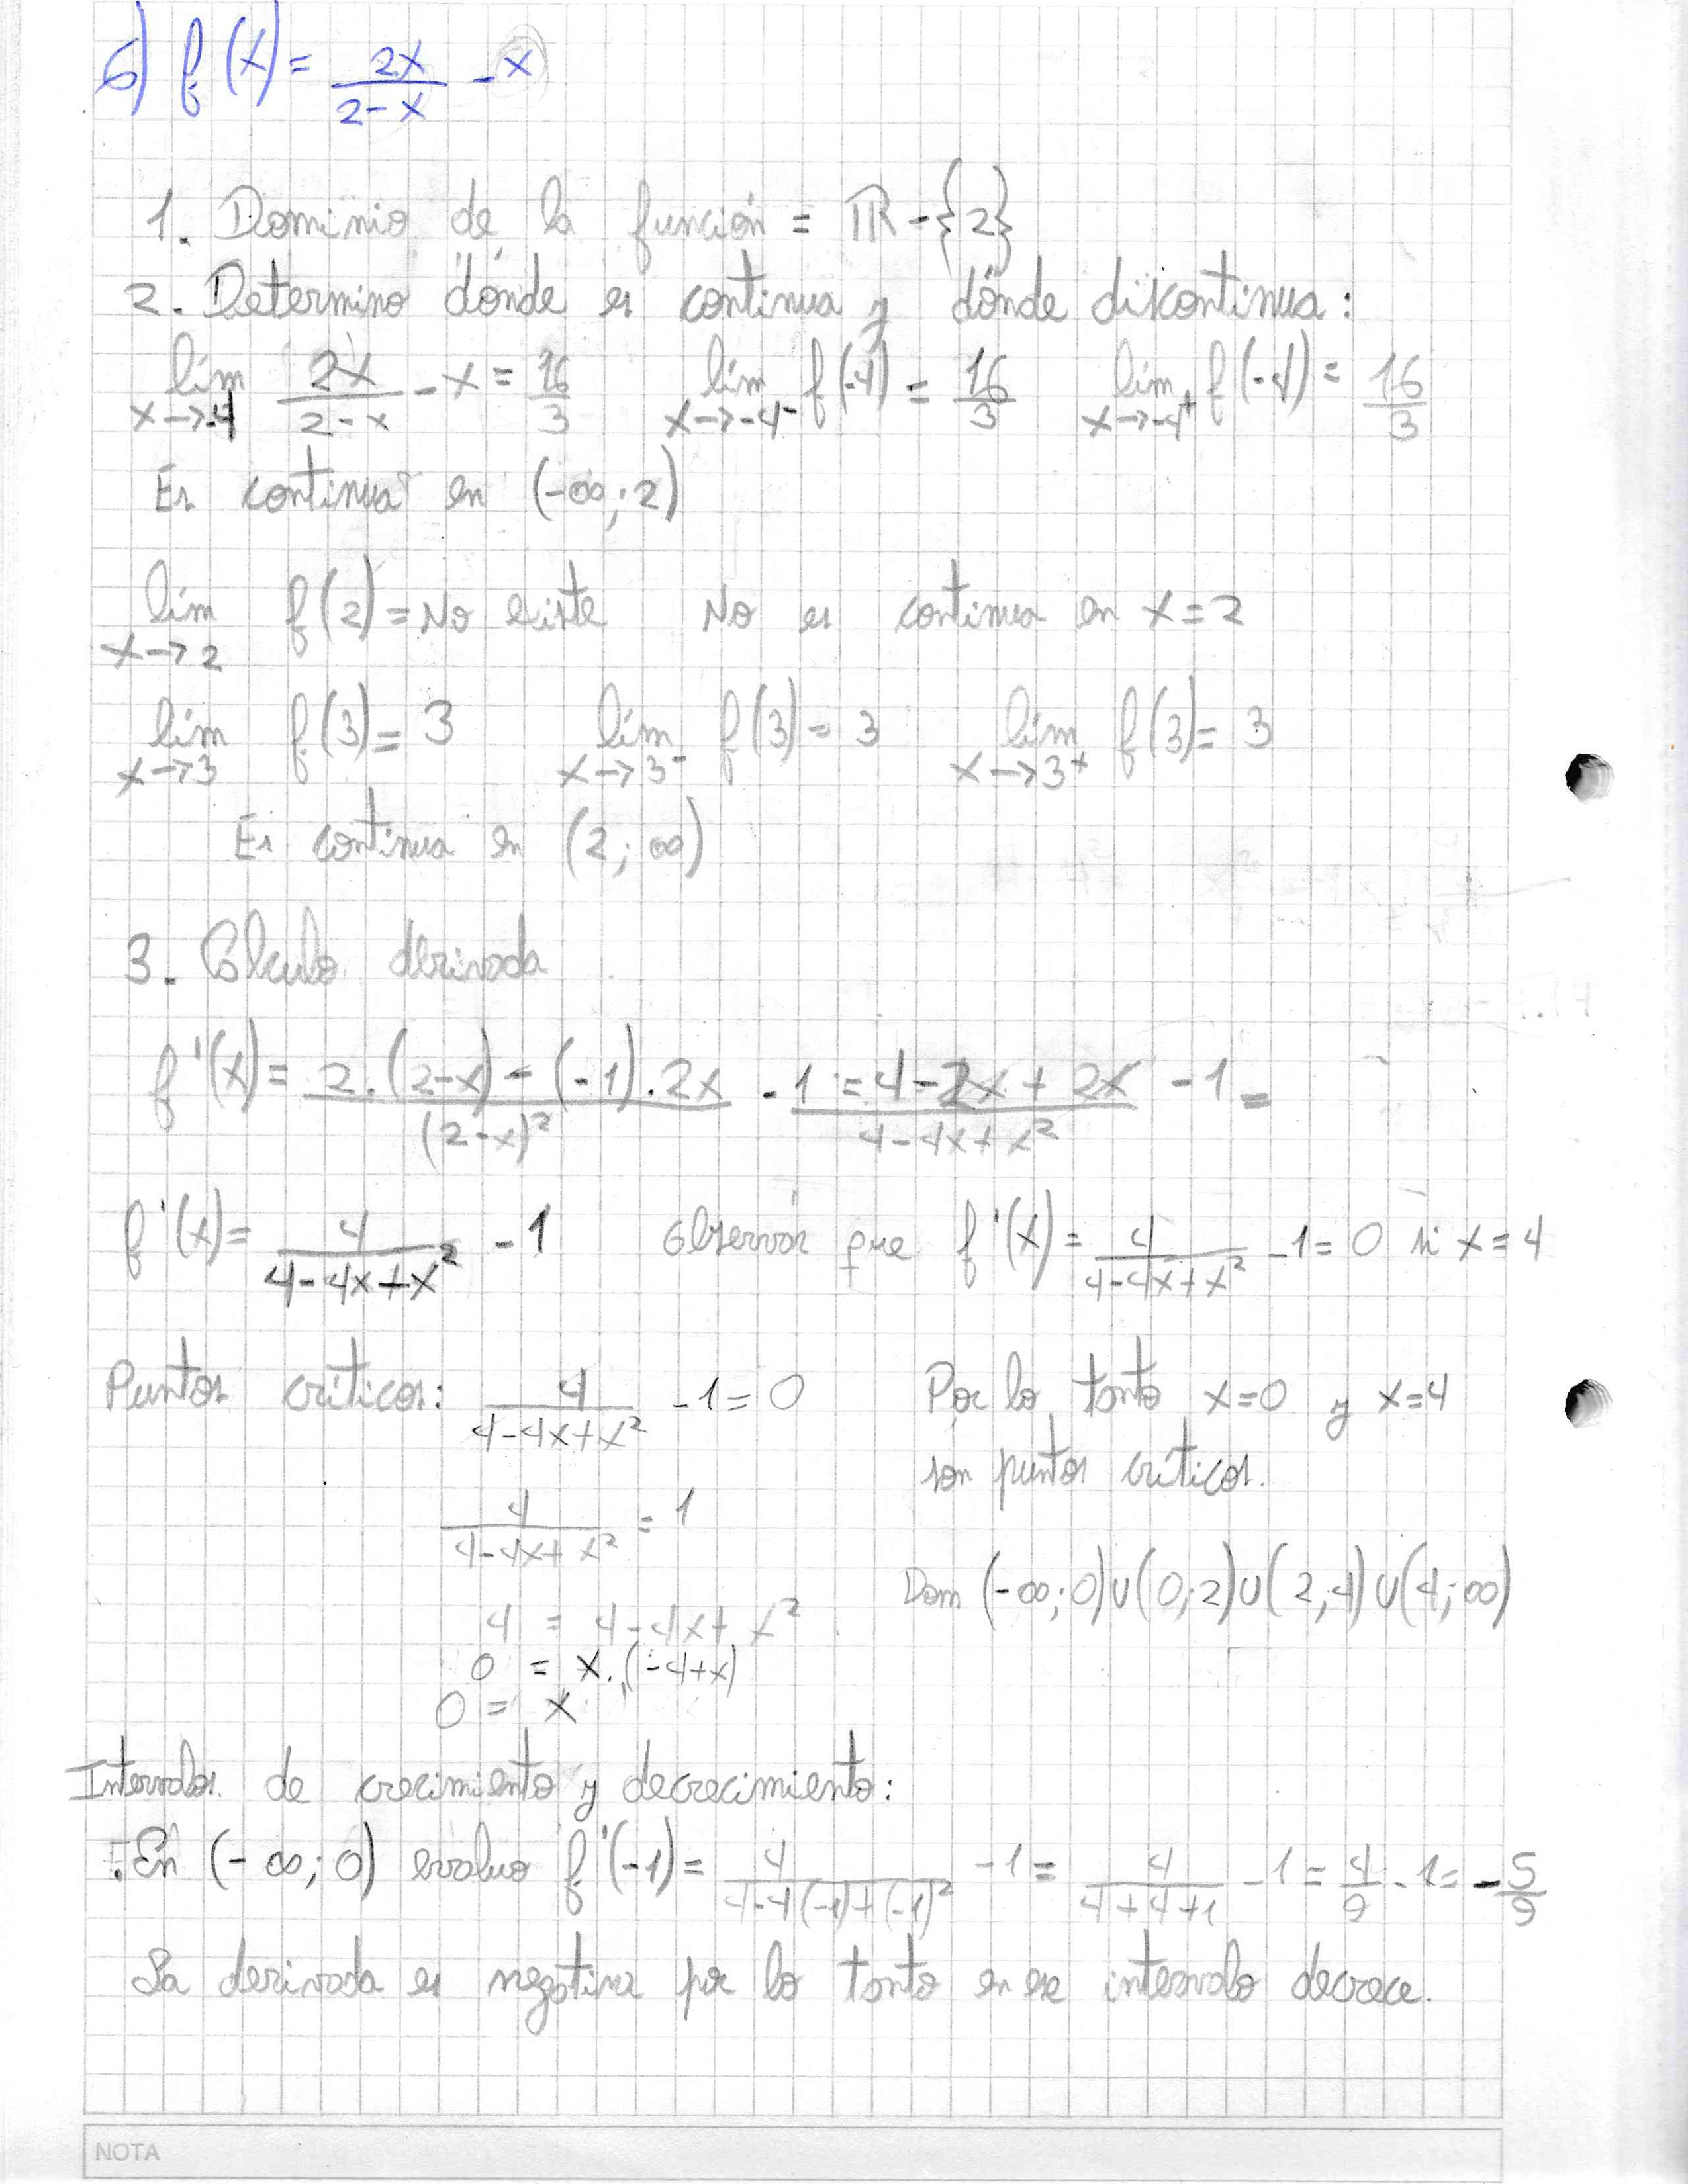 6) f(x) = 2x/(2-x) - x
1. Dominio de la función = ℝ - {2}
2. Determino dónde es continua y dónde discontinua:
lím x→-4 2x/(2-x) - x = 16/3 lím x→-4⁻ f(-4) = 16/3 lím x→-4⁺ f(-4) = 16/3
Es continua en (-∞; 2)
lím x→2 f(2) = No existe No es continua en x=2
lím x→3 f(3) = 3 lím x→3⁻ f(3) = 3 lím x→3⁺ f(3) = 3
Es continua en (2; ∞)
3. Cálculo derivada
f'(x) = (2.(2-x) - (-1).2x)/(2-x)² - 1 = (4-2x+2x)/(4-4x+x²) - 1 =
f'(x) = 4/(4-4x+x²) - 1 Observar que f'(x) = 4/(4-4x+x²) - 1 = 0 si x=4
Puntos críticos: 4/(4-4x+x²) - 1 = 0
4/(4-4x+x²) = 1
4 = 4-4x+x²
0 = x.(-4+x)
0 = x
Por lo tanto x=0 y x=4
son puntos críticos.
Dom (-∞;0)∪(0;2)∪(2;4)∪(4;∞)
Intervalos de crecimiento y decrecimiento:
. En (-∞; 0) evaluo f'(-1) = 4/(4-4(-1)+(-1)²) - 1 = 4/(4+4+1) - 1 = 4/9 - 1 = -5/9
La derivada es negativa por lo tanto en ese intervalo decrece.
NOTA